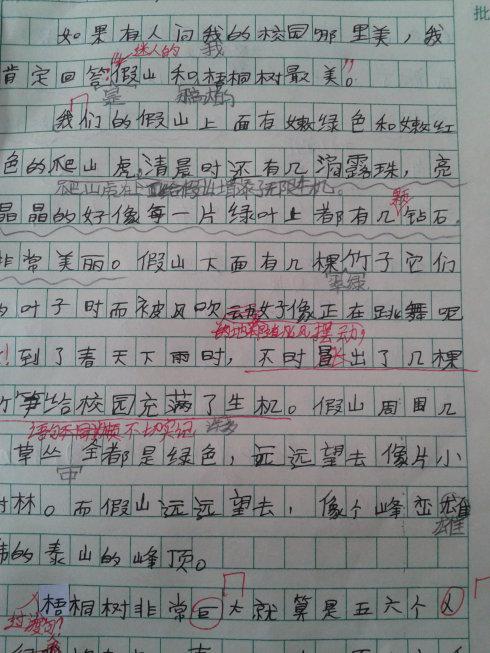 批
如果有人问我的校园哪里美，我
迷人的
我
肯定回答：“假山和梧桐树最美。”
是
高大的
我们的假山上面有嫩绿色和嫩红
色的爬山虎，清晨时还有几滴露珠，亮
爬山虎 给假山增添了无限生机。
晶晶的好像每一片绿叶上都有几钻石
颗
非常美丽。假山下面有几棵竹子它们
翠绿
的叶子时而被风吹动好像正在跳舞呢
摆动，
！到了春天下雨时，不时冒出了几棵
长
竹笋给校园充满了生机。假山周围几
语句不 不切实际
许多
草丛全都是绿色，远远望去像片小
中
树林。而假山远远望去，像个峰峦雄
雄
伟的泰山的峰顶。
梧桐树非常巨大就算是五六个人
过渡句？